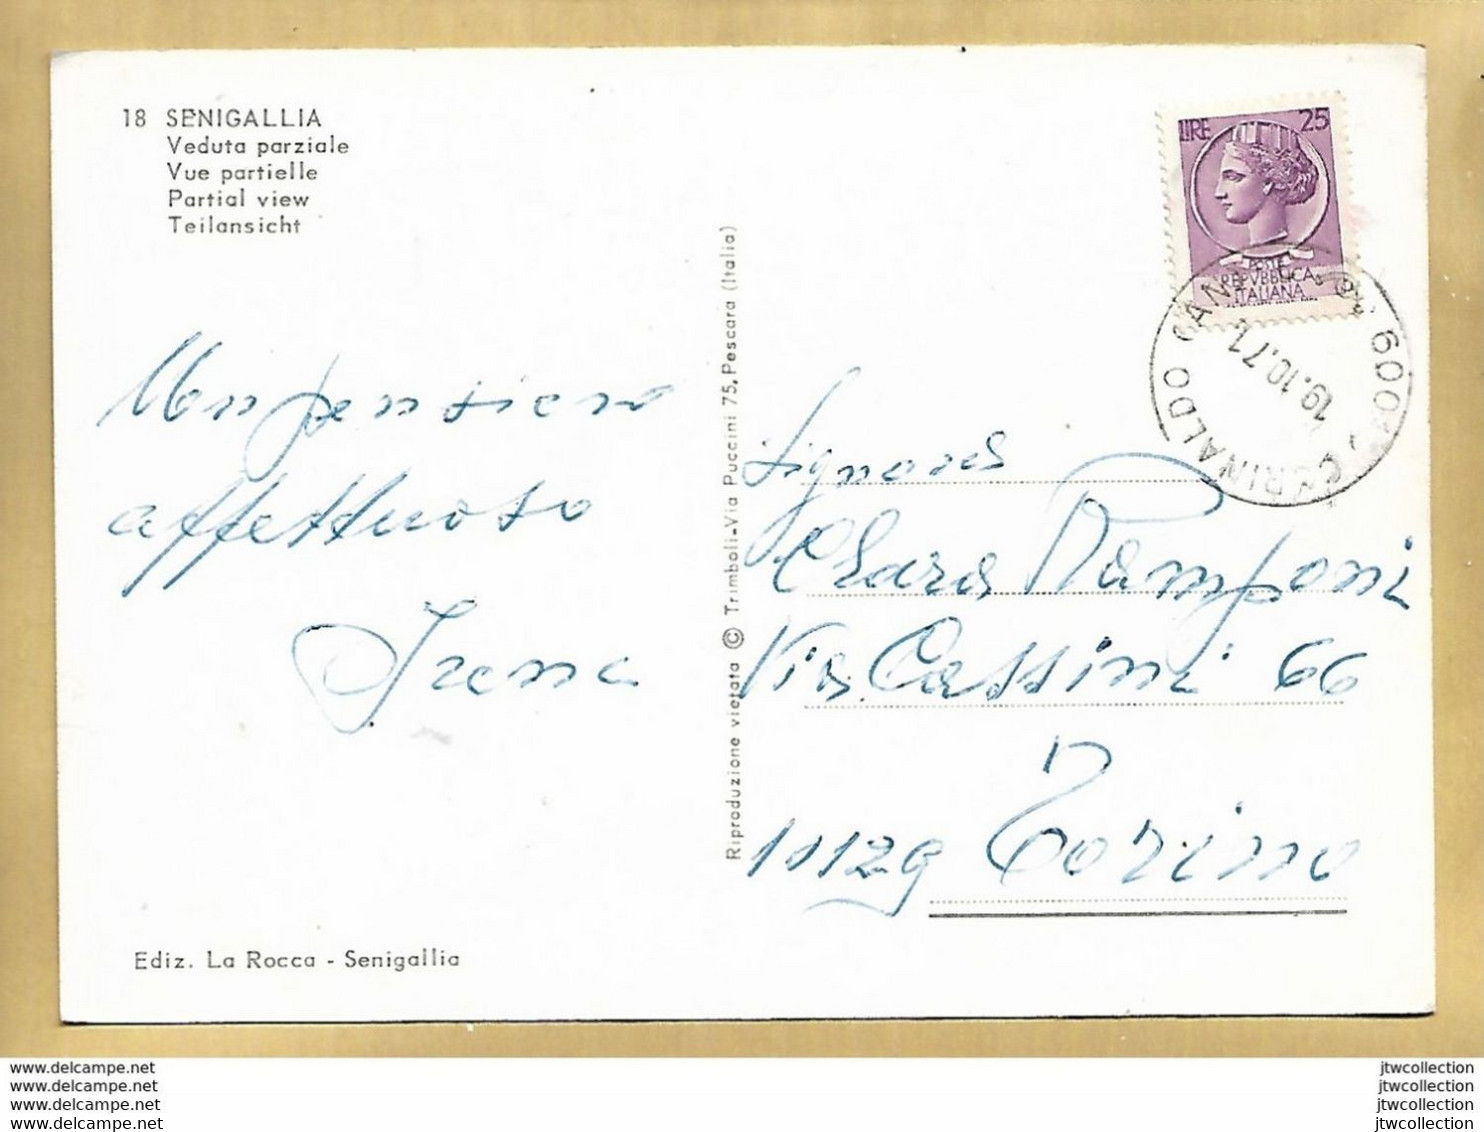 18 SENIGALLIA
Veduta parziale
Vue partielle
Partial view
Teilansicht
LIRE 25
POSTE
REPVBBLICA
ITALIANA
19.10.71
CORINALDO
Un pensiero
affettuoso
Irene
Riproduzione vietata © Trimboli-Via Puccini 75, Pescara (Italia)
Signora
Clara Ramponi
Via Cassini 66
10129 Torino
Ediz. La Rocca - Senigallia
www.delcampe.net
www.delcampe.net
www.delcampe.net
www.delcampe.net
jtwcollection
jtwcollection
jtwcollection
jtwcollection